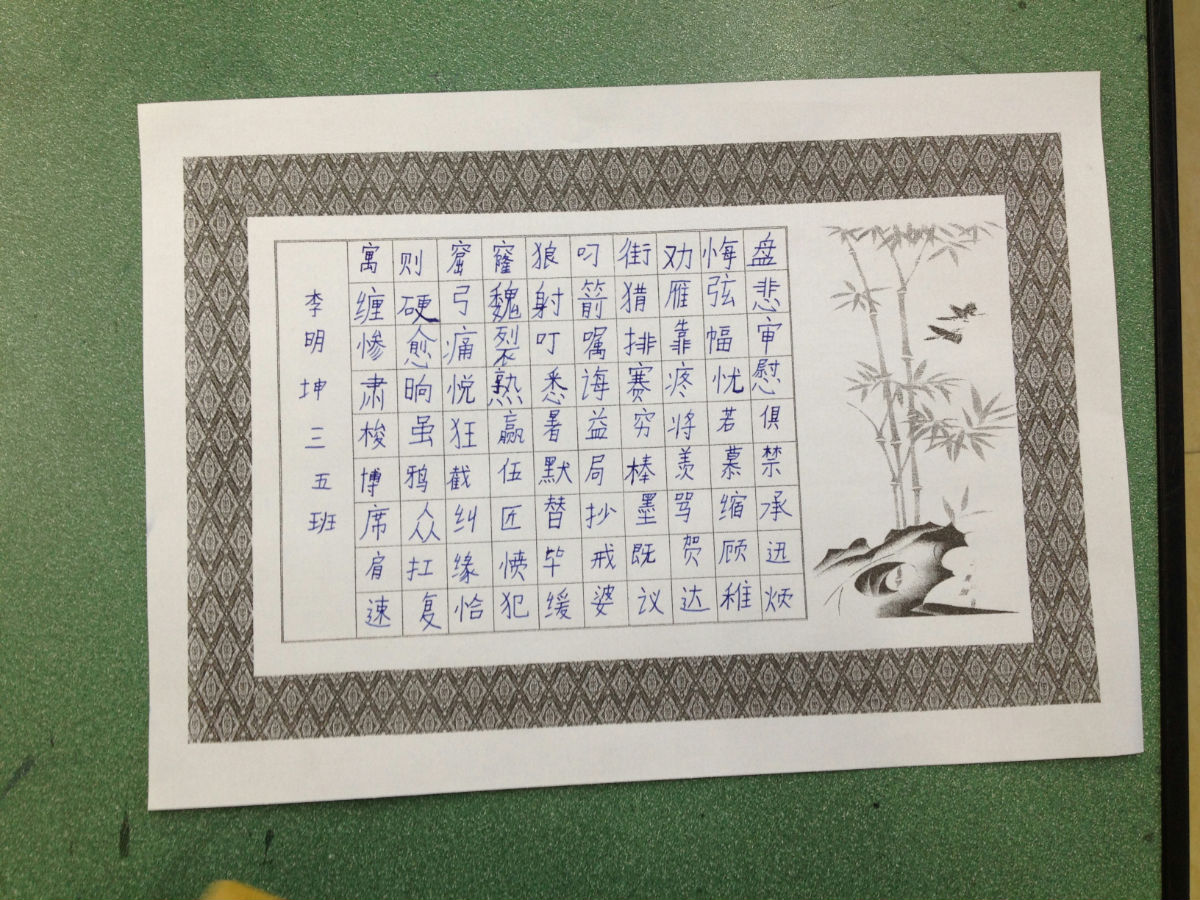 寓则窟窿狼叼街劝悔盘
缠硬弓魏射箭猎雁弦悲
惨愈痛裂叮嘱排靠幅审
肃晌悦熟悉诲赛疼忧慰
梭虽狂赢暑益穷将若俱
博鸦截伍默局棒羡慕禁
席众纠匠替抄墨骂缩承
肩扛缘愤毕戒既贺顾迅
速复恰犯缓婆议达稚烦
李明坤三五班